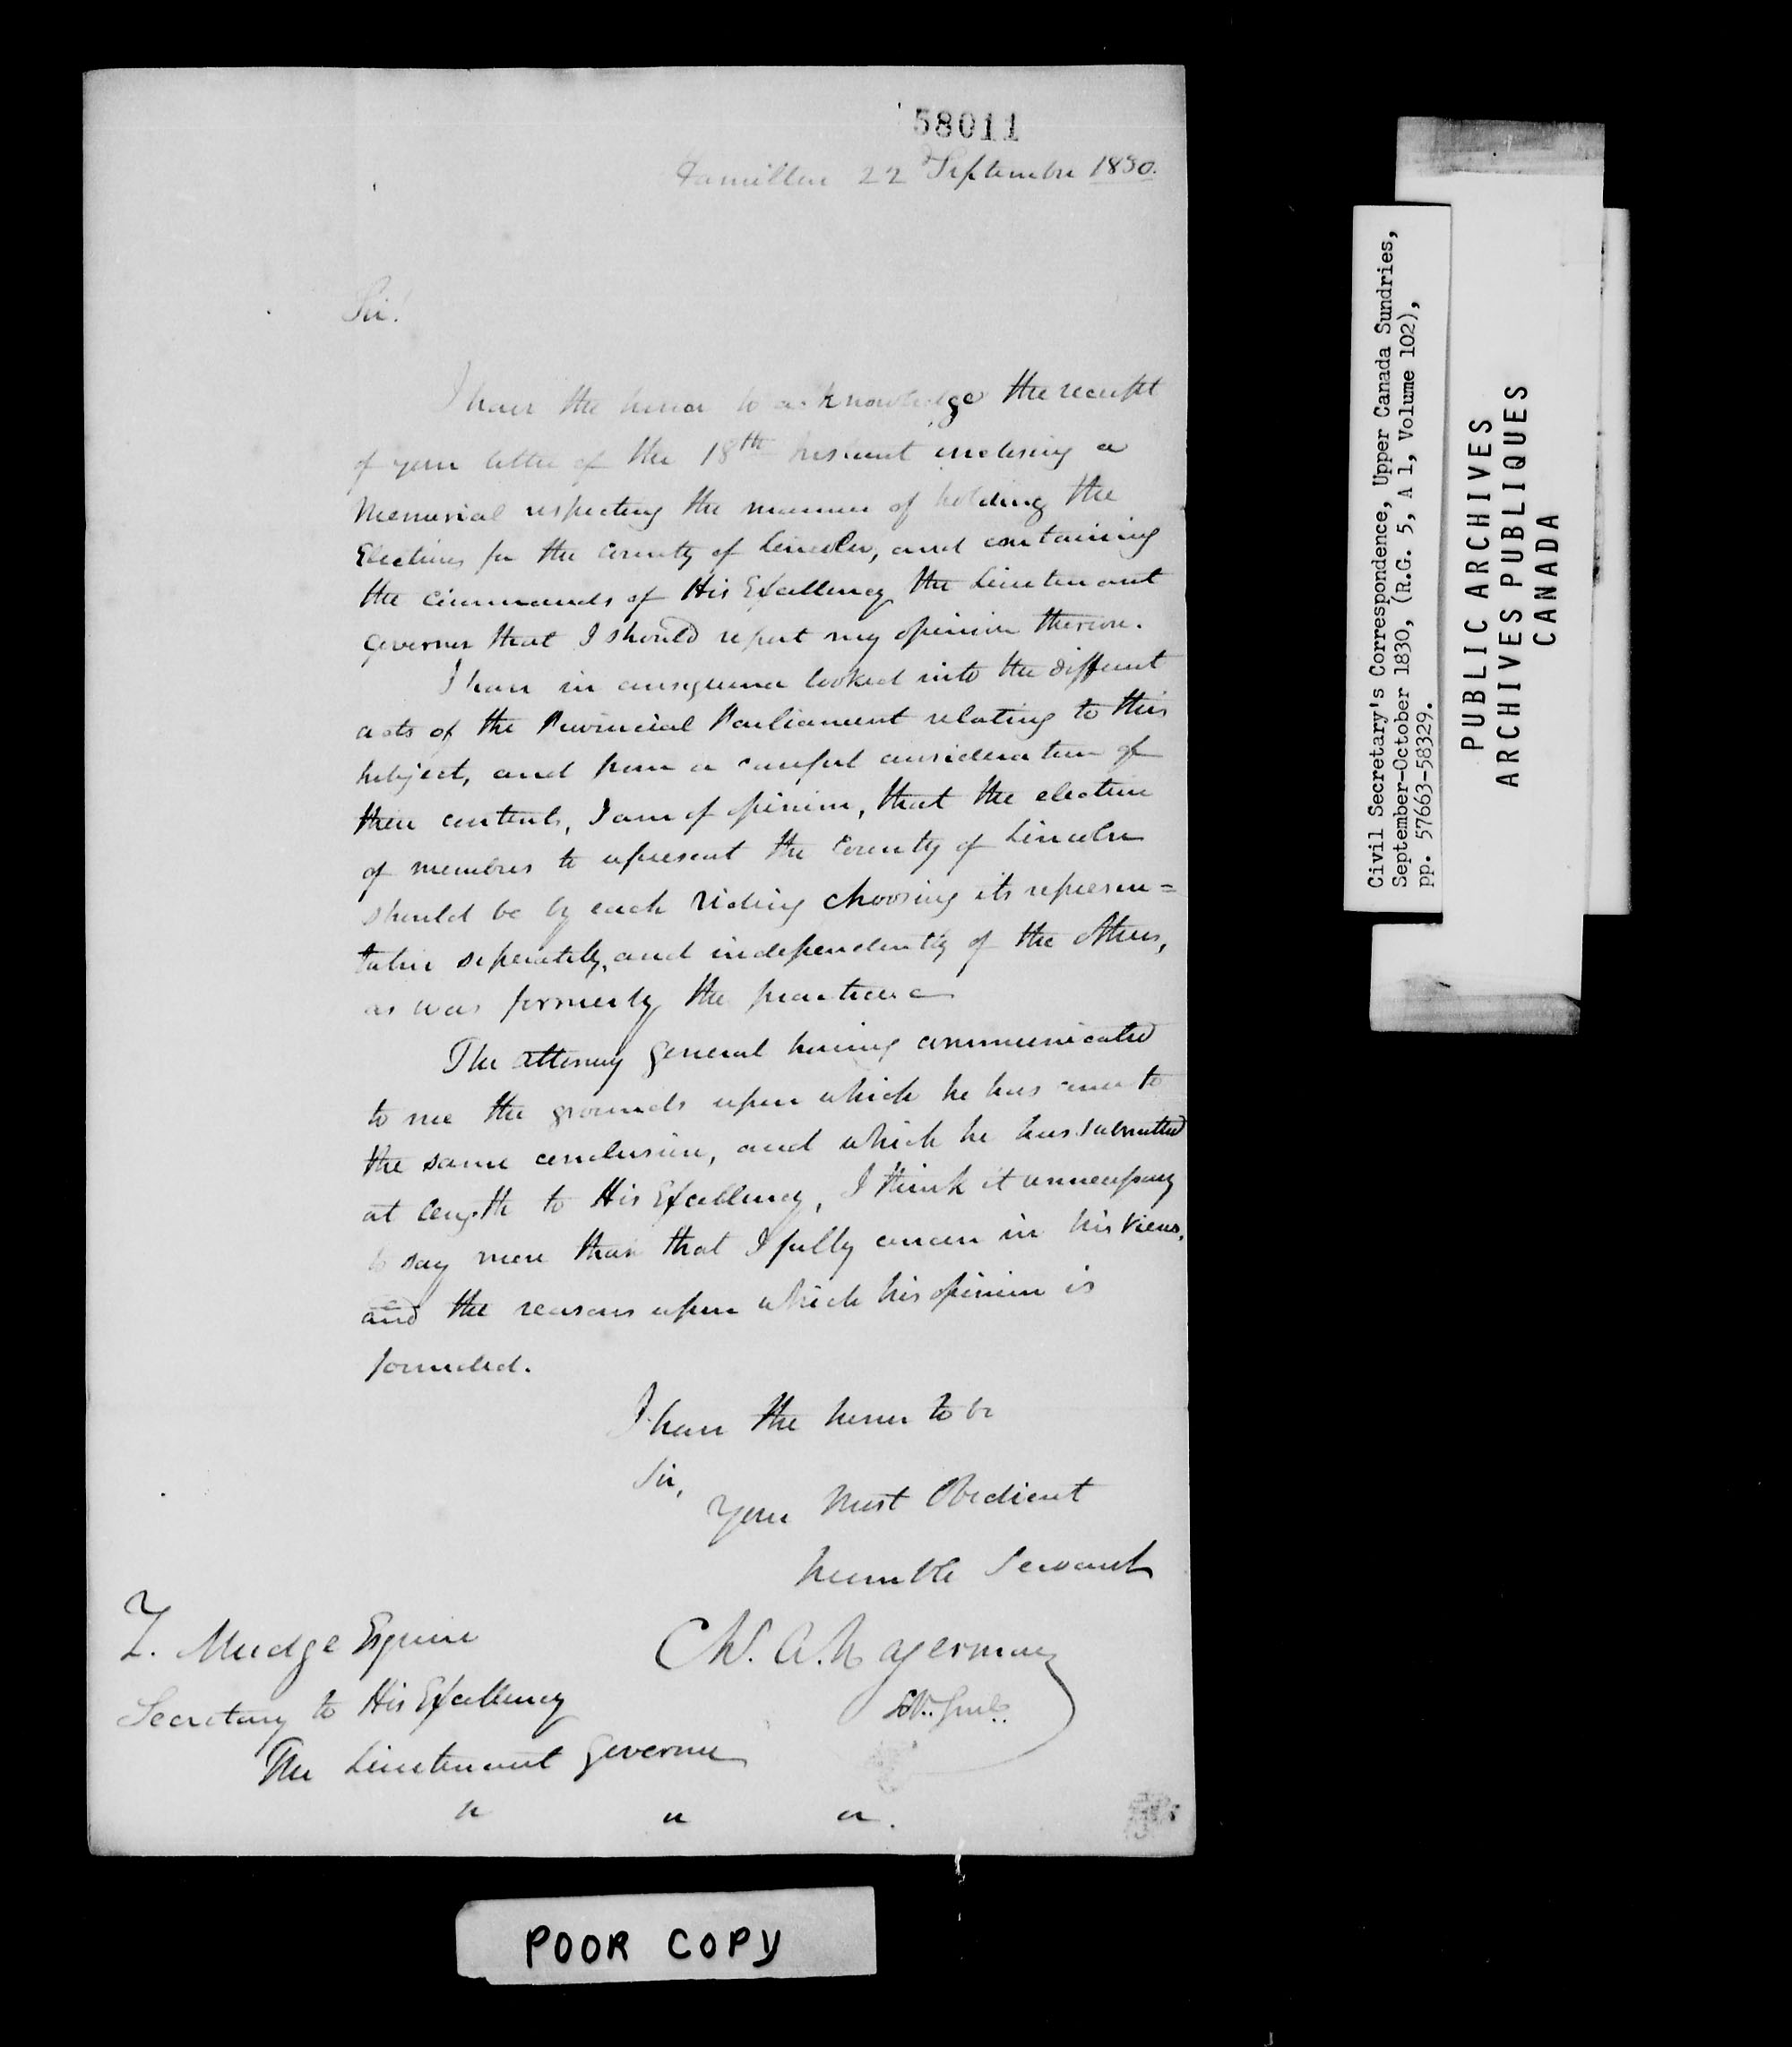 58011
Hamilton 22 September 1830.
Sir!
I have the honor to acknowledge the receipt
of your letter of the 18th instant inclosing a
Memorial respecting the manner of holding the
Elections for the County of Lincoln, and containing
the commands of His Excellency the Lieutenant
Governor that I should report my opinion thereon.
I have in consequence looked into the different
acts of the Provincial Parliament relating to this
subject, and from a careful consideration of
their contents, I am of opinion, that the election
of members to represent the County of Lincoln
should be by each riding choosing its represen=
tative seperately, and independently of the others,
as was formerly the practice
The Attorney General having communicated
to me the grounds upon which he has come to
the same conclusion, and which he has submitted
at length to His Excellency, I think it unnecessary
to say more than that I fully concur in his views,
and the reasons upon which his opinion is
founded.
I have the honor to be
Sir,
Your Most Obedient
humble Servant
Z. Mudge Esquire
Ch. A. Hagerman
Secretary to His Excellency
Solr. Genl.
The Lieutenant Governor
" " ".
POOR COPY
Civil Secretary's Correspondence, Upper Canada Sundries,
September-October 1830, (R.G. 5, A 1, Volume 102),
pp. 57663-58329.
PUBLIC ARCHIVES
ARCHIVES PUBLIQUES
CANADA